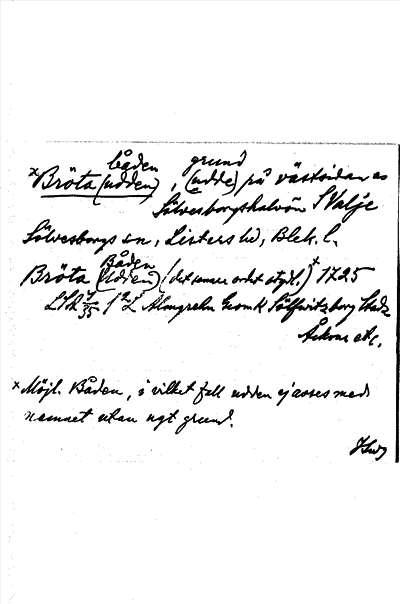 båden grund
×Bröta (udden), (udde) på västsidan av
Sölvesborgshalvön S Valje
Sölvesborgs sn, Listers hd, Blek. l.
Båden
Bröta (Udden) (det senare ordet otydl.)× 1725
LSA 1 Almgrehn Geom K Sölfwitzborg Stadz
Åkrar etc.
× Möjl. Båden, i vilket fall udden ej avses med
namnet utan ngt grund.